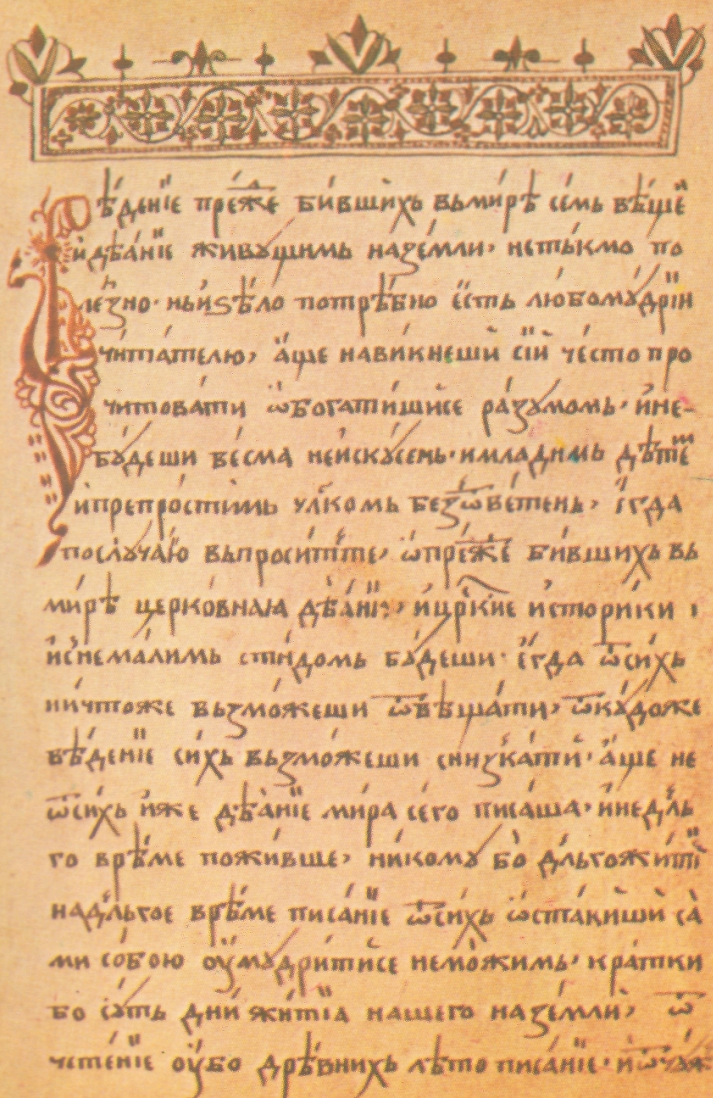 Вѣ́денїе преже би́вшихь вьми́рѣ се́мь вѣщей
и дѣа́нїе живꙋ́щимь назе́мли, нетькмо по
ле́зно· ньиѕѣ́ло потрѣ́бно є҆́сть любомꙋ́дрїи
читáтелю, а҆́ще нави́кнеши сїи̇̀ че́сто про
читова́ти ѡ҆богати́шисе ра́зꙋмомь, и҆не-
бꙋ́деши весма̀ неи҆скꙋ́сень· имлади́мь дѣте
и҆препрости́мь чл҃комь безѿве́тень, є҆гда̀
послꙋча́ю вьпроси́тите, ѡ҆преже би́вшихь вь
ми́рѣ церко́внаꙗ дѣа́нїꙗ, и҆цр҃кїе и҆сто́рики ꙇ
и҆снема́лимь сти́домь бꙋ́деши· є҆гда̀ ѿси́хь
ничто́же вьзмо́жеши ѿвѣща́ти, ѿкꙋ́доже
вѣ́денїе си́хь вьзмо́жеши сниска́ти· а҆́ще не
ѿси́хь и҆́же дѣа́нїе ми́ра сего̀ писа́ша, инедль
го врѣ́ме пожи́вше, нико́мꙋ бо̀ дльгожи́тїе
надльгое врѣ́ме писа́нїе ѿси́хь ѡ҆ста́виши са́
ми собо́ю оу҆мꙋдри́тисе немо́жимь, кра́тки
бо сꙋ́ть дни̇̀ жи́тїа на́шего назе́мли, ѿ
чете́нїе оу҆́бо дрѣ́внихь лѣ́то писа́нїе, и҆